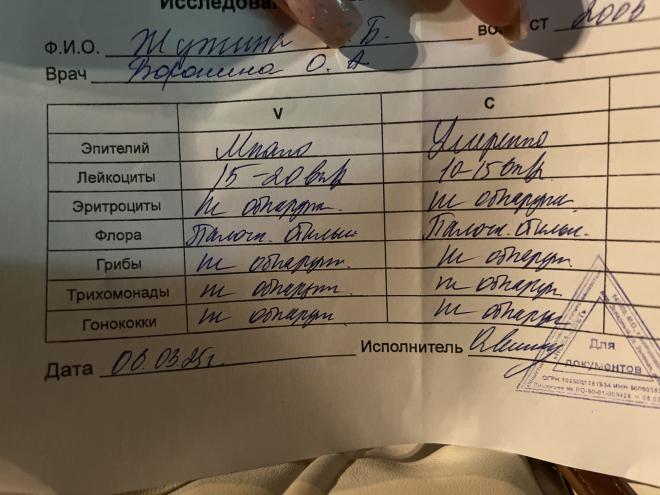 Исследован
Ф.И.О. Жупина Б. во ст 2006
Врач Воронина О. А
V С
Эпителий Много Умеренно
Лейкоциты 15-20 в п/зр 10-15 в п/зр
Эритроциты не обнаруж. не обнаруж.
Флора Палочк. обильн. Палочк. обильн.
Грибы не обнаруж. не обнаруж.
Трихомонады не обнаруж. не обнаруж.
Гонококки не обнаруж не обнаруж
Дата 06.03.25г. Исполнитель
Для
документов